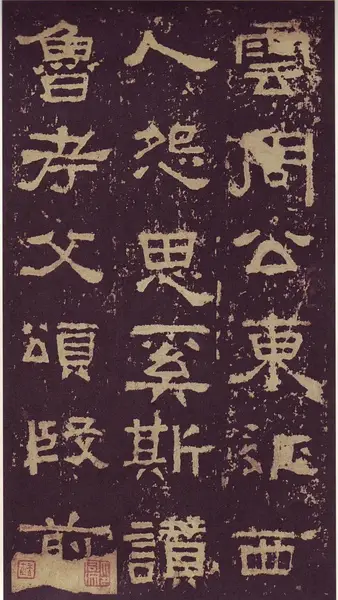 雲問公東征西
人怨思奚斯讚
魯考父頌殷前